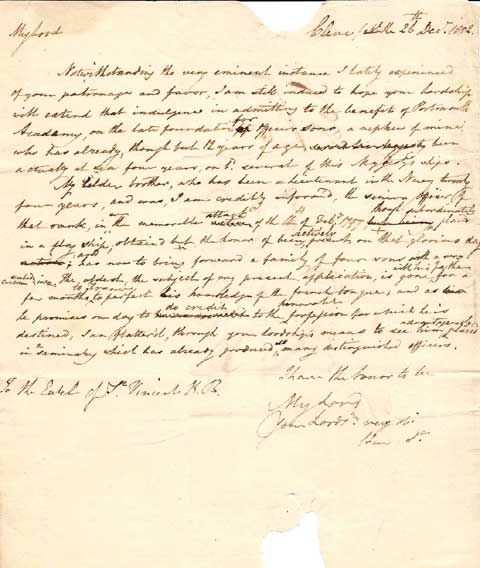 My Lord
26th Decr. 1802.
Notwithstanding the very eminent instance I lately experienced
of your patronage and favor, I am still induced to hope your Lordship
will extend that indulgence in admitting to the benefit of Portsmouth
Academy, on the late foundation for officers sons, a nephew of mine,
who has already, though but 12 years of age, been
actually at sea four years, on bd. several of his Majesty's ships.
My Elder brother, who has been a lieutenant in the Navy twenty
four years, and was, I am credibly informed, the senior officer of
that rank, in the memorable attack of the 14th of Feby. 1797 tho'
in a flag ship, obtained but the honor of being actively present on that glorious day
has now to bring forward a family of four sons with a very
The eldest, the subject of my present application, is gone with his father for a
few months, to Germany to perfect his knowledge of the french tongue; and as
he promises one day to do credit to the honorable profession for which he is
destined, I am flatter'd, through your lordship's means to see him advantageously placed
in a seminary which has already produced so many distinguished officers.
I have the honor to be
My Lord
Your Lordsps. very
To the Earl of St. Vincent K.B.